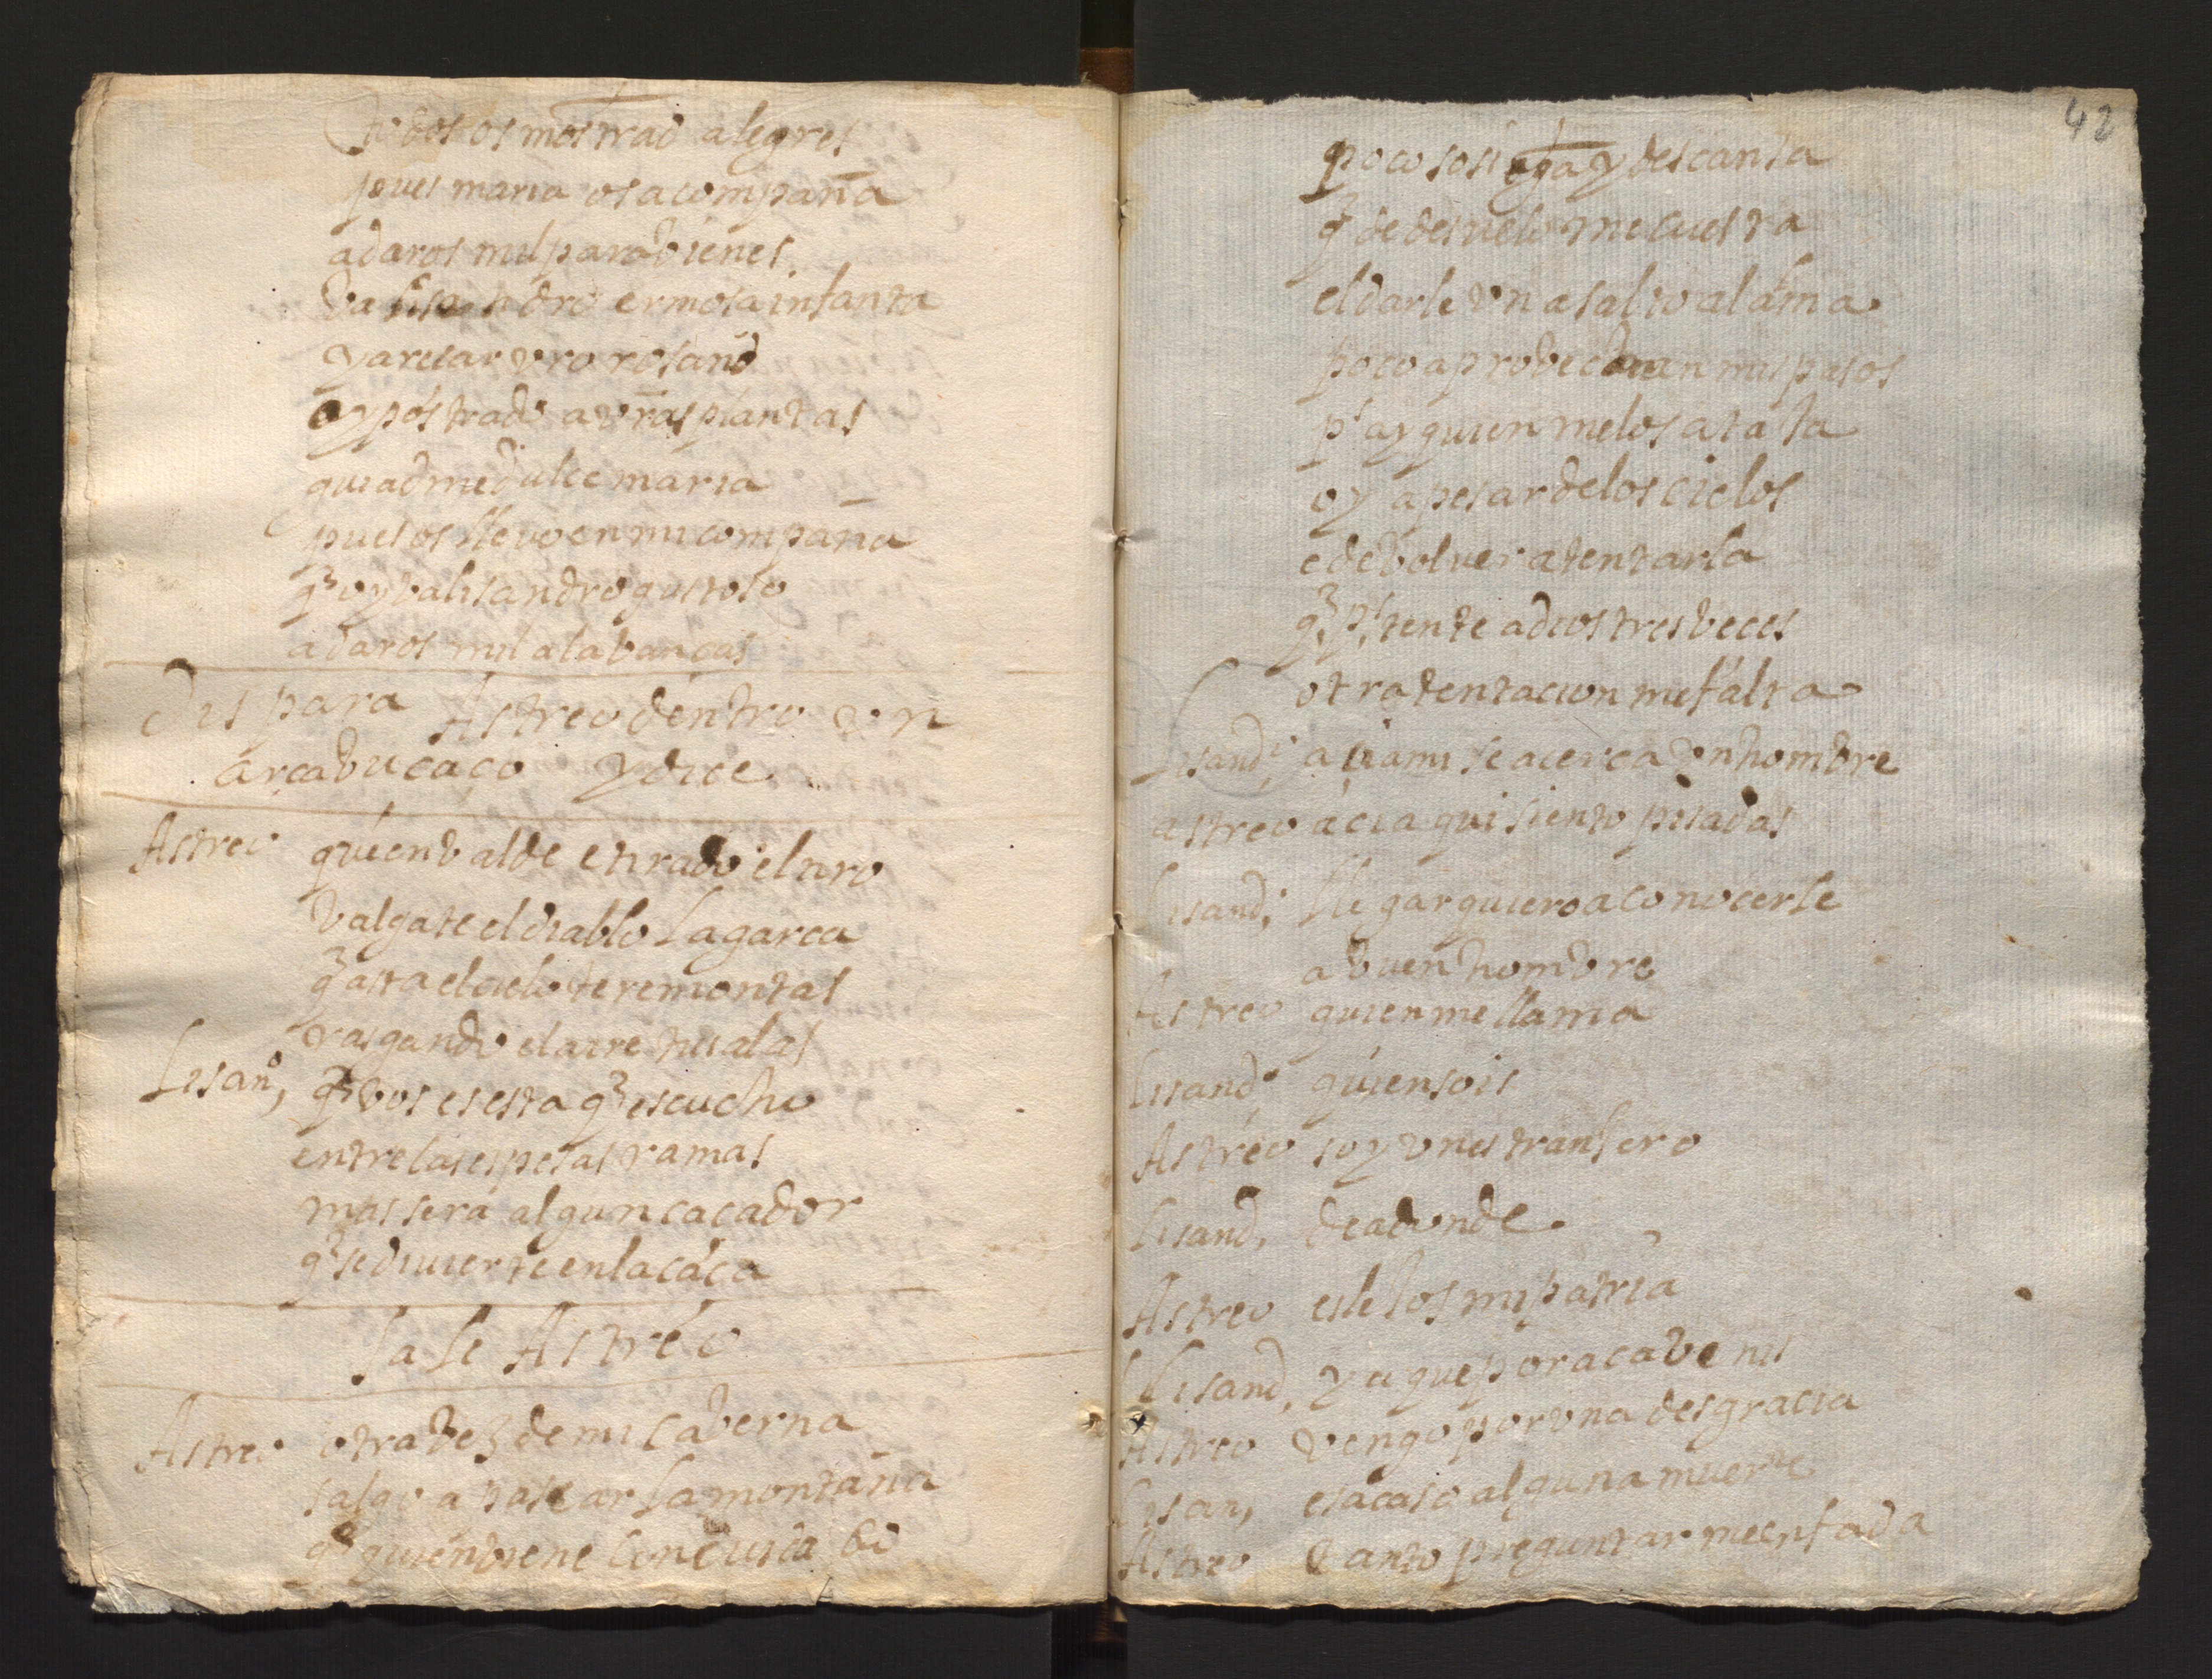 todos os mostrad alegres
pues maria os acompaña
a daros mil parabienes
va lisandro ermosa infanta
y a resar vro rosario
oy postrado a vras plantas
guiadme dulce maria
pues os llevo en mi compaña
q oy va lisandro gustoso
a daros mil alabanças
Dispara Astreo dentro un
arcabucaço y dice
Astreo quien valde e tirado el tiro
valgate el diablo la garça
q asta el cielo te remontas
rasgando el aire tus alas
Lisan, q vos es esta q escucho
entre las espesas ramas
mas sera algun caçador
q se diuierte en la caça
Sale Astreo
Astreo otra vez de mi caberna
salgo a pasear la montaña
q quien viene con cuidado
42
poco sosiega y descansa
q de desuelo me cuesta
el darle un asalto al alma
poco aprobechan mis pasos
ps ay quien me los ataja
oy a pesar de los cielos
e de bolver a tentarla
q ps tente a dios tres veces
otra tentacion me falta
Lisand, acia mi se acerca un hombre
astreo acia qui siento pisadas
Lisand, llegar quiero a conocerle
a buen hombre
Astreo quien me llama
Lisand, quien sois
Astreo soy un estranjero
Lisand, de adonde
Astreo es lejos mi patria
Lisand, y a que por aca venis
Astreo vengo por una desgracia
Lisan, es acaso alguna muerte
Astreo tanto preguntar me enfada